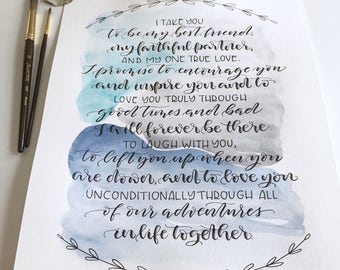 I TAKE YOU
to be my best friend,
my faithful partner,
AND MY ONE TRUE LOVE.
I promise to encourage you
and inspire you and to
LOVE YOU TRULY THROUGH
good times and bad
I will forever be there
TO LAUGH WITH YOU,
to lift you up when you
are down, and to love you
UNCONDITIONALLY THROUGH ALL
of our adventures
in life together.